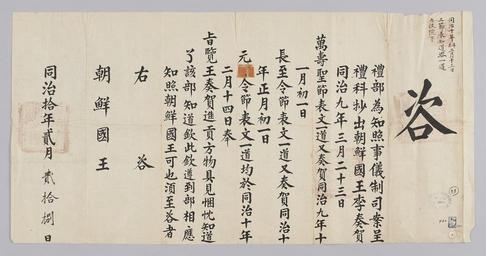 咨
禮部為知照事儀制司案呈
禮科抄出朝鮮國王李奏賀
同治九年三月二十三日
萬壽聖節表文一道又奏賀同治九年十
一月初一日
長至令節表文一道又奏賀同治十
年正月初一日
元旦令節表文一道均於同治十年
二月十四日奉
旨覽王奏賀進貢方物具見悃忱知道
了該部知道欽此欽遵到部相應
知照朝鮮國王可也須至咨者
右咨
朝鮮國王
同治拾年貳月貳拾捌日